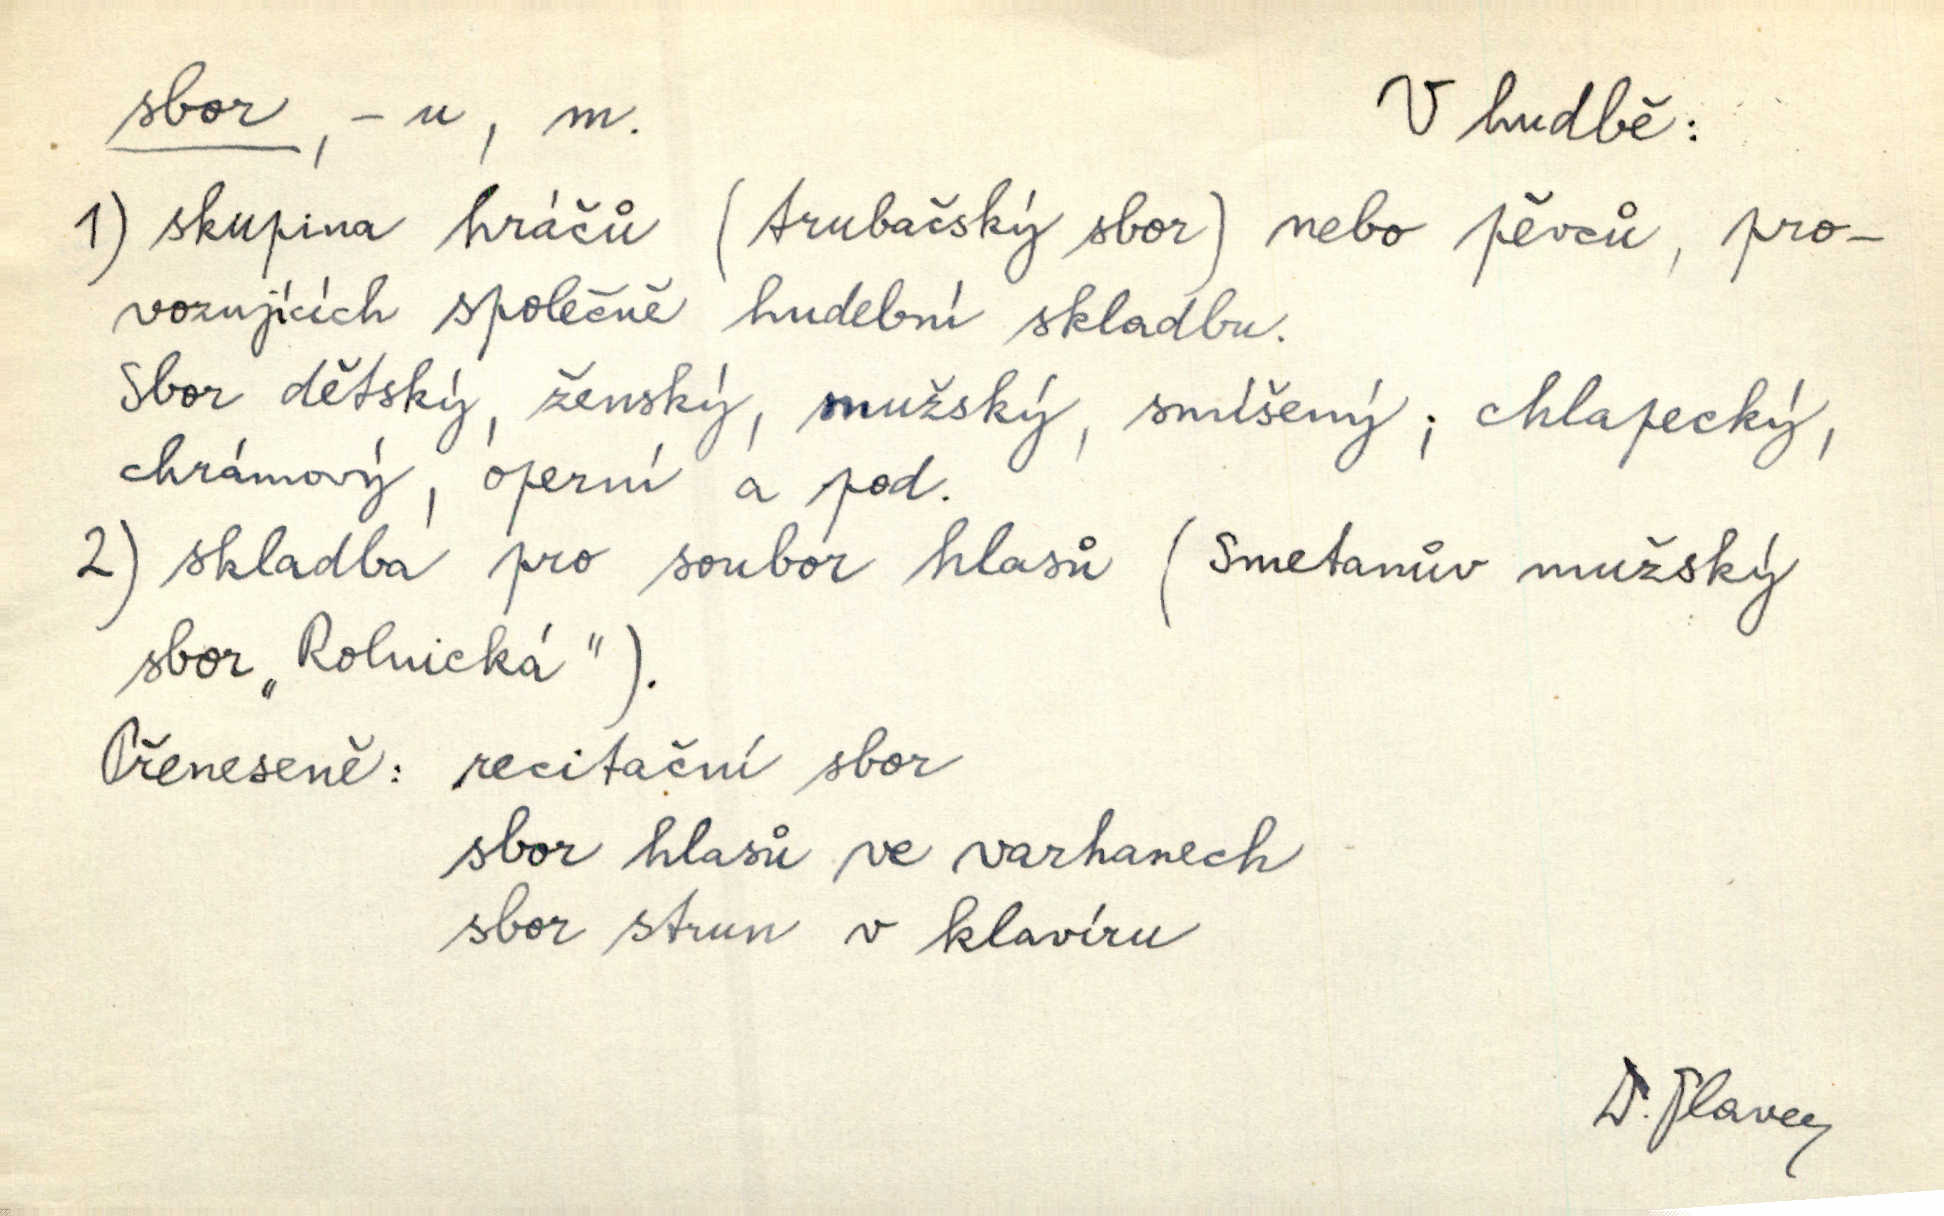 sbor, -u, m. V hudbě:
1) skupina hráčů (trubačský sbor) nebo pěvců, pro-
vozujících společně hudební skladbu.
Sbor dětský, ženský, mužský, smíšený; chlapecký,
chrámový, operní a pod.
2) skladba pro soubor hlasů (Smetanův mužský
sbor „Rolnická").
Přeneseně: recitační sbor
sbor hlasů ve varhanech
sbor strun v klavíru